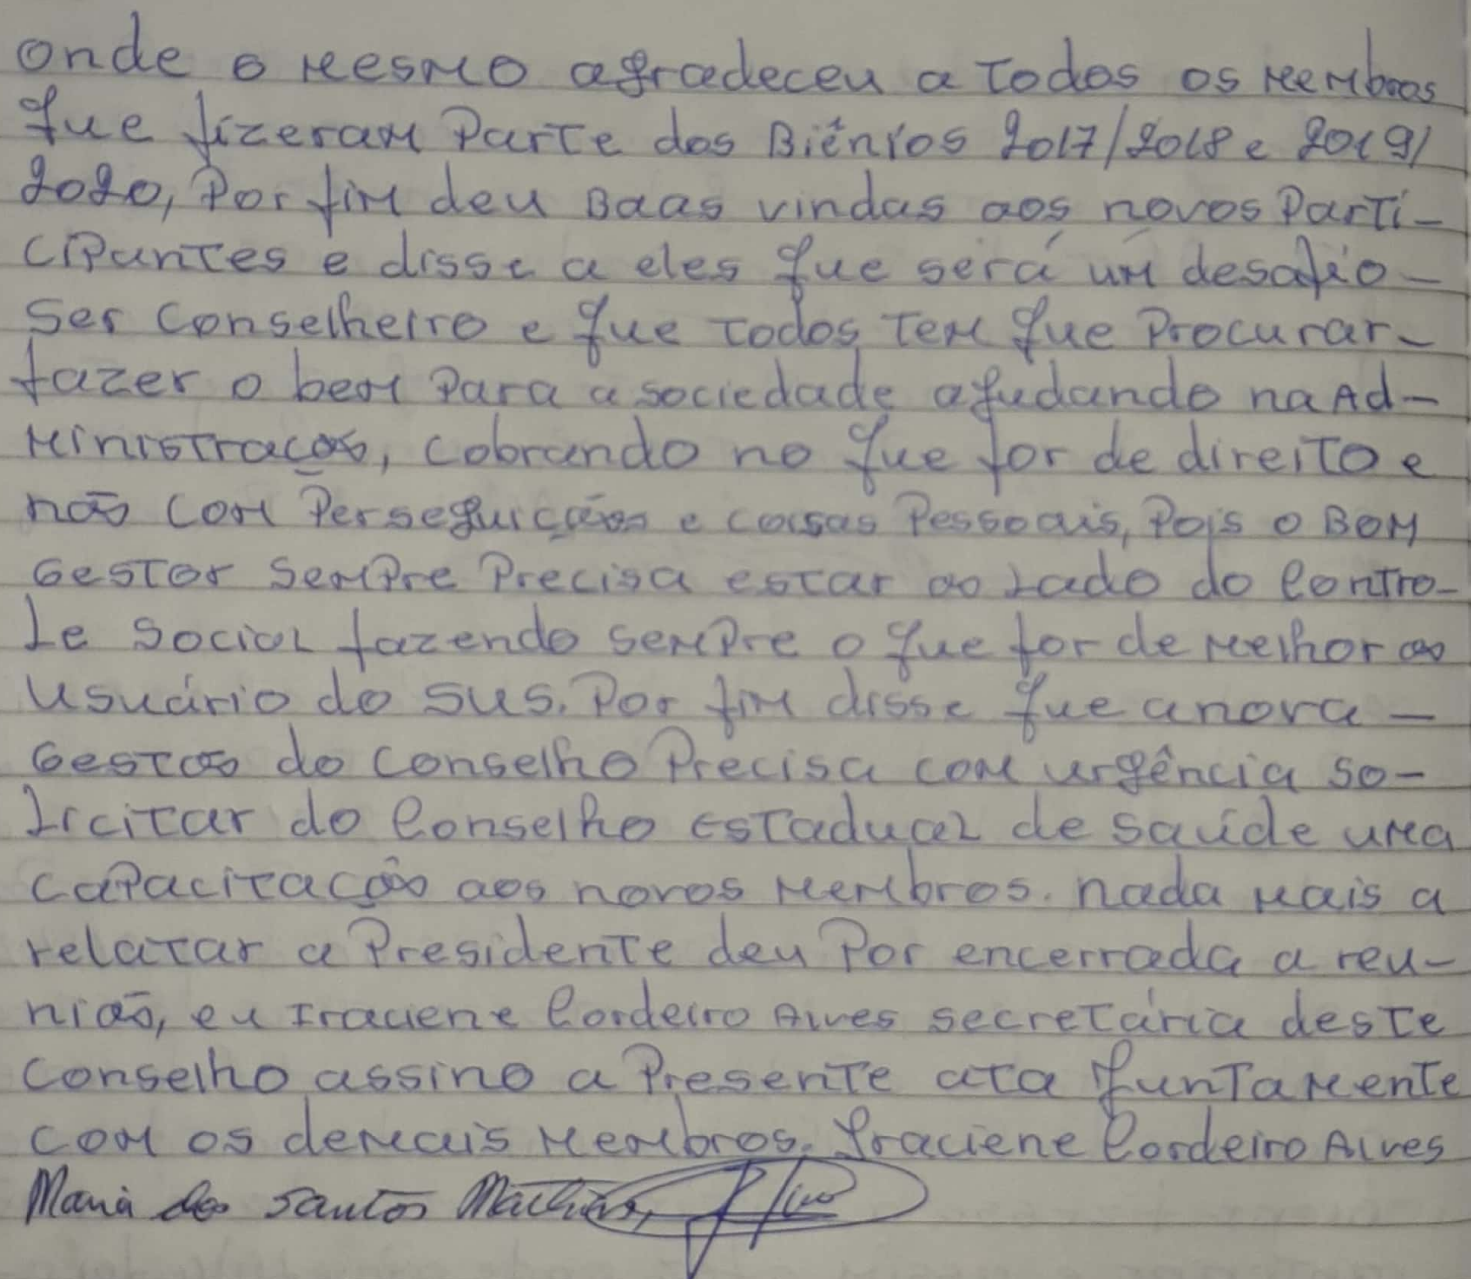 onde o mesmo agradeceu a todos os membros
que fizeram parte dos Biênios 2017/2018 e 2019/
2020, Por fim deu Boas vindas aos novos Parti-
cipantes e disse a eles que será um desafio-
Ser Conselheiro e que todos tem que Procurar-
fazer o bem Para a sociedade ajudando na Ad-
ministração, cobrando no que for de direito e
não com Perseguições e coisas Pessoais, Pois o BOM
Gestor Sempre Precisa estar ao Lado do Contro-
Le Social fazendo sempre o que for de melhor ao
usuário do SUS. Por fim disse que a nova-
Gestão do Conselho Precisa com urgência so-
licitar do Conselho Estadual de saúde uma
capacitação aos novos membros. nada mais a
relatar a Presidente deu Por encerrada a reu-
nião, eu Iraciene Cordeiro Alves secretária deste
Conselho assino a Presente ata juntamente
com os demais membros. Iraciene Cordeiro Alves
Maria dos Santos